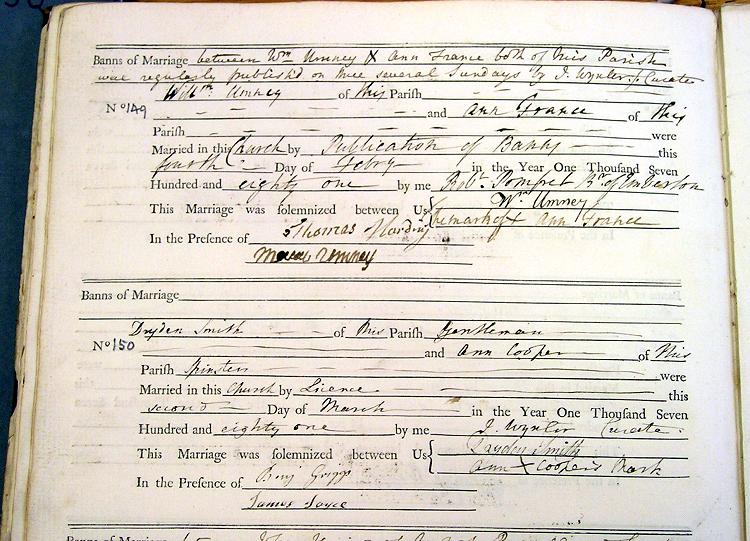 Banns of Marriage between Wm Umney & Ann France both of this Parish
was regularly publish'd on three several Sundays by J. Wynter Curate
Willm Umney of this Parish
No 149 and Ann France of this
Parish were
Married in this Church by Publication of Banns this
fourth Day of Febry in the Year One Thousand Seven
Hundred and eighty one by me Robt. Pomfret Rr. of Emberton
This Marriage was solemnized between Us Wm Umney
the mark of X Ann France
In the Presence of Thomas Harding
Umney
Banns of Marriage
Dryden Smith of this Parish Gentleman
No 150 and Ann Cooper of this
Parish Spinster were
Married in this Church by Licence this
second Day of March in the Year One Thousand Seven
Hundred and eighty one by me J. Wynter Curate
This Marriage was solemnized between Us Dryden Smith
Ann X Cooper's Mark
In the Presence of Benj Griggs
James Joyce
Banns of Marriage